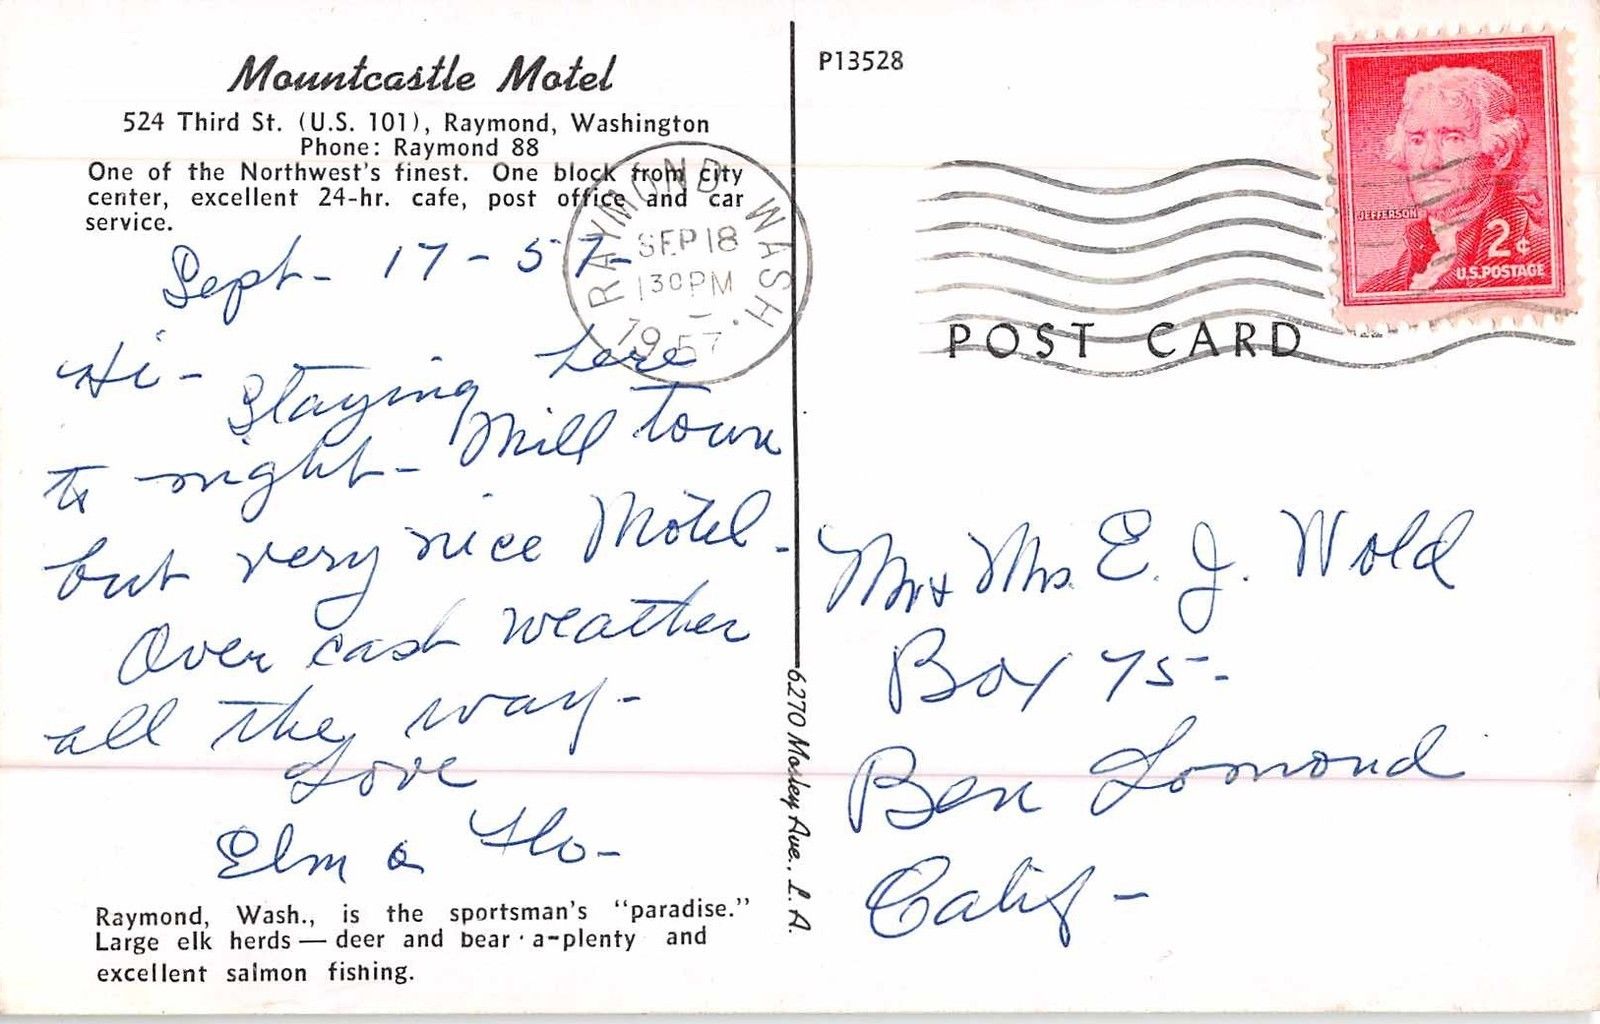 Mountcastle Motel
524 Third St. (U.S. 101), Raymond, Washington
Phone: Raymond 88
One of the Northwest's finest. One block from city
center, excellent 24-hr. cafe, post office and car
service.
Sept - 17 - 57 -
Hi - Staying here
to night - Mill town
but very nice Motel -
Over cast weather
all the way -
Love
Elm & Flo -
Raymond, Wash., is the sportsman's "paradise."
Large elk herds — deer and bear · a-plenty and
excellent salmon fishing.
6270 Mosley Ave., L.A.
RAYMOND WASH.
SEP 18
1 30 PM
1957
P13528
JEFFERSON
2¢
U.S. POSTAGE
POST CARD
Mr & Mrs E. J. Wold
Box 75 -
Ben Lomond
Calif -